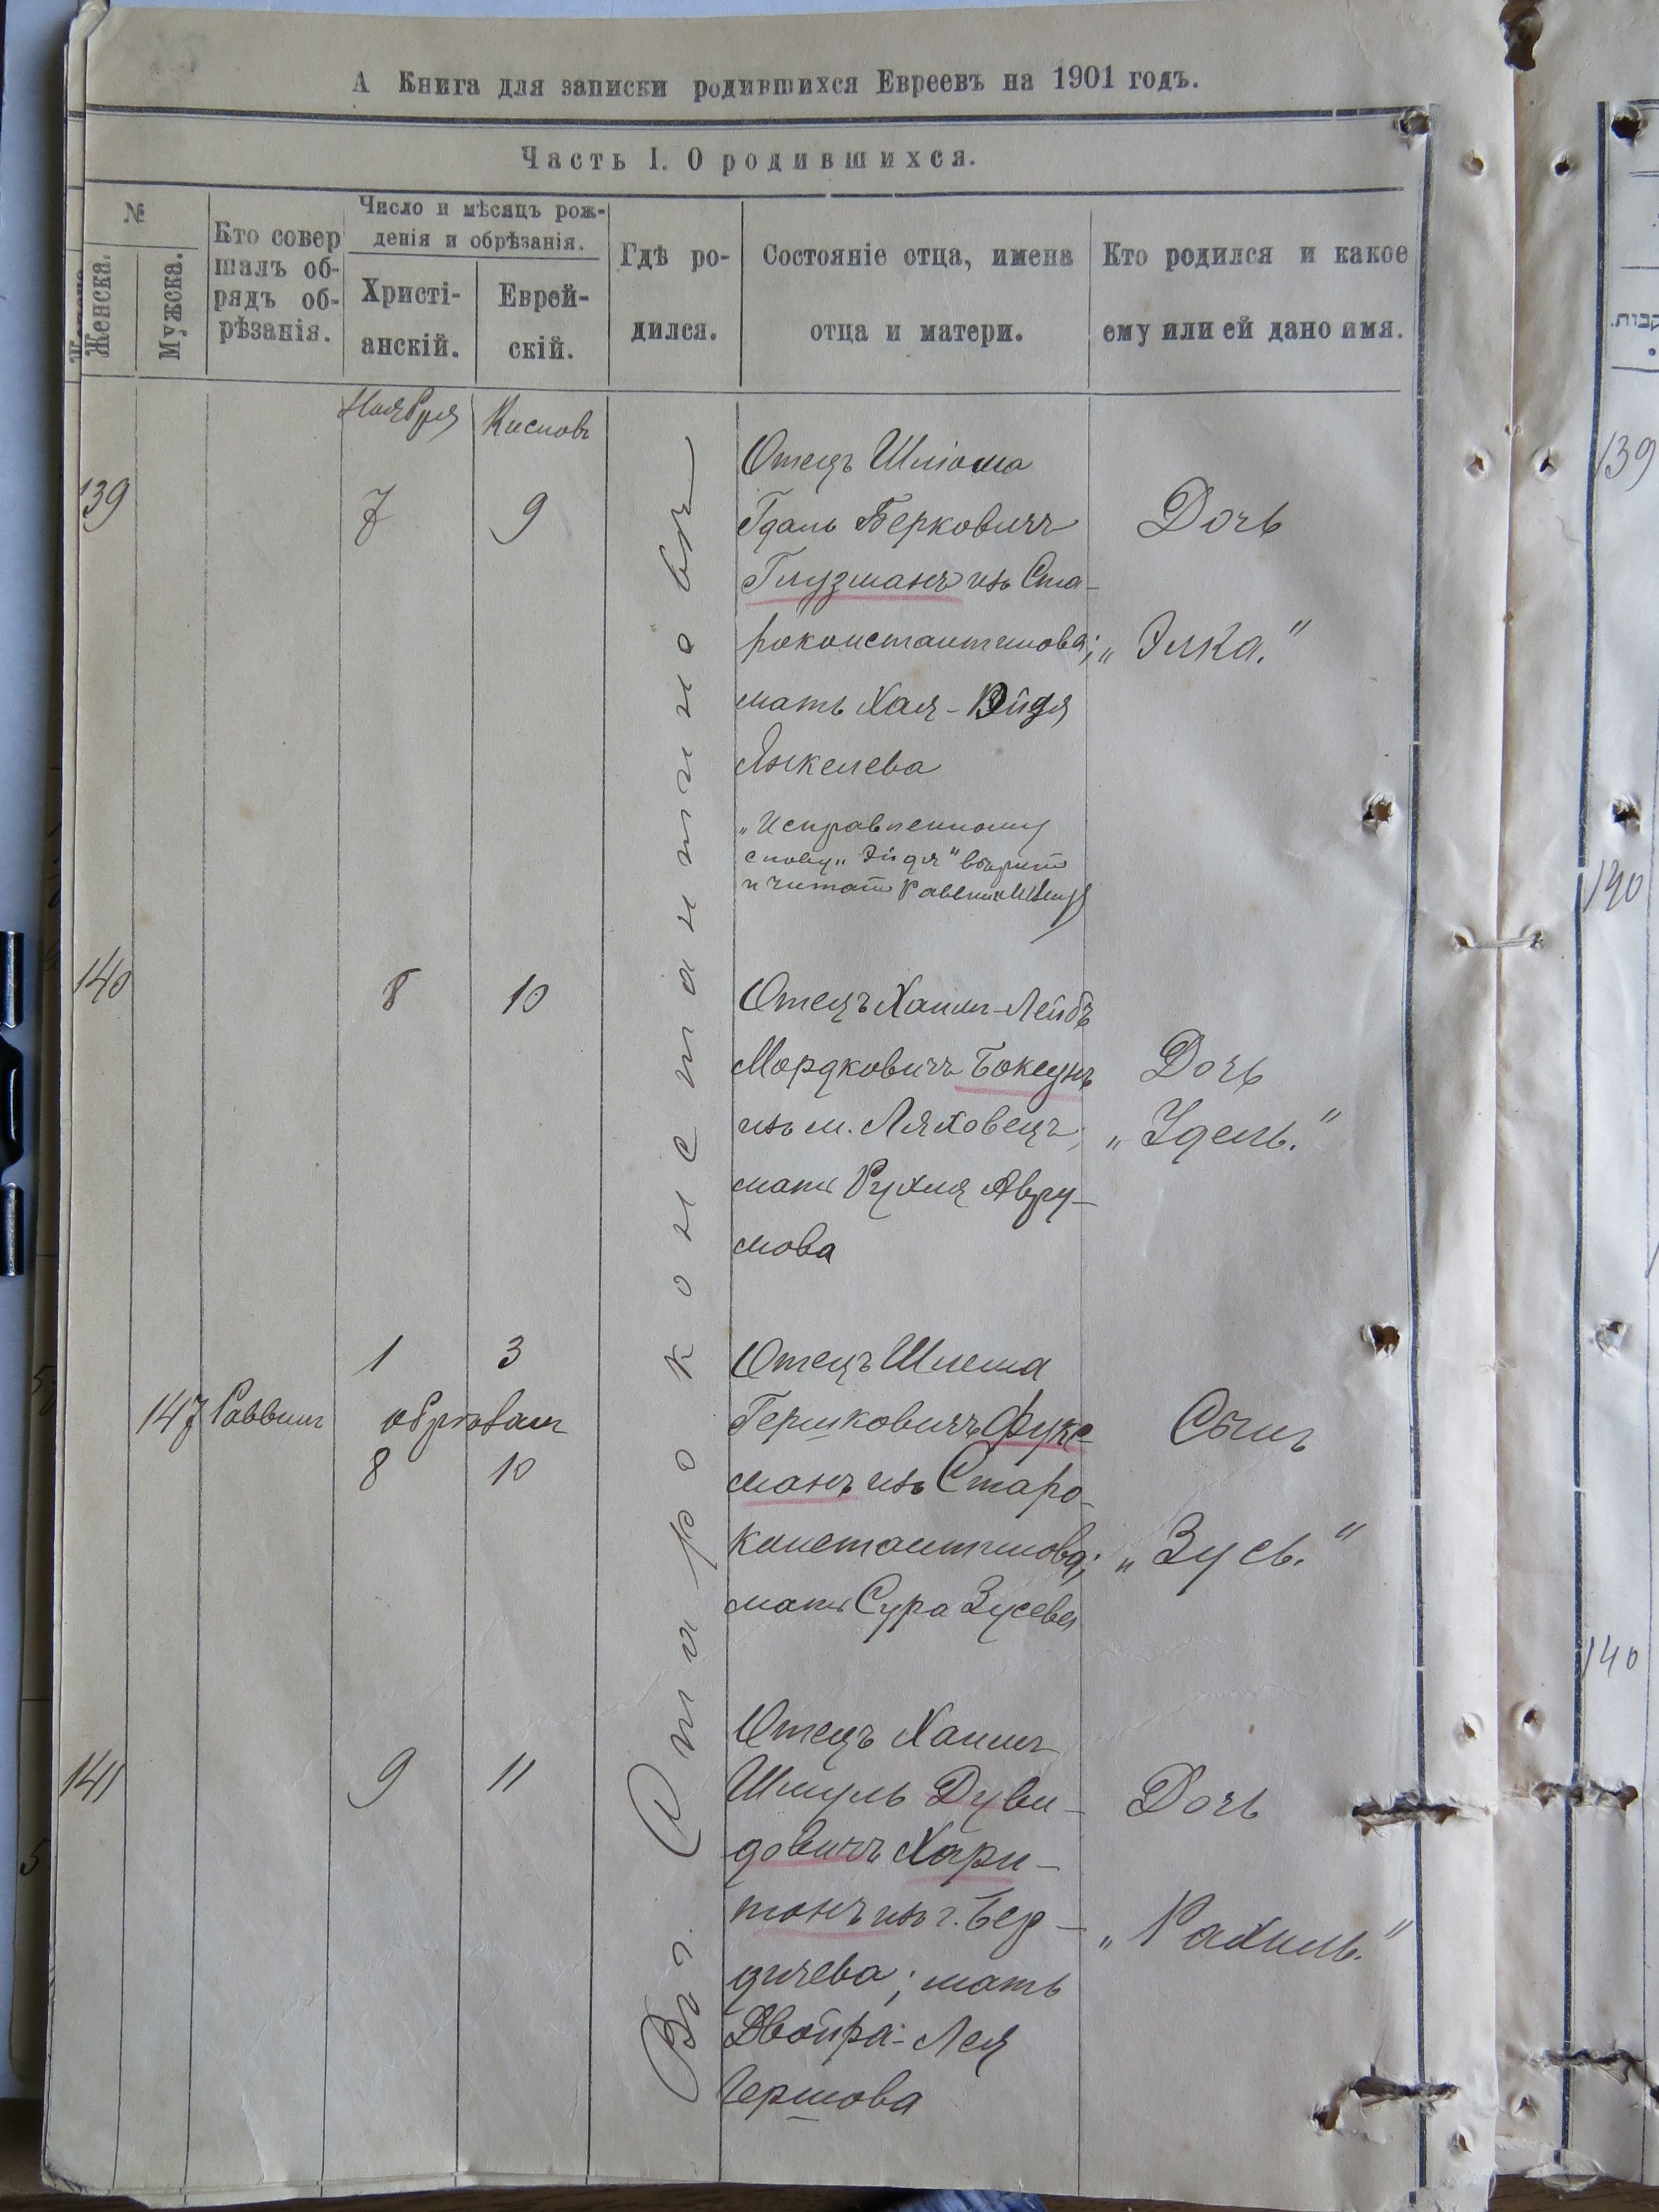 А Книга для записки родившихся Евреевъ на 1901 годъ.
Часть I. О родившихся.
№
Женска.
Мужска.
Кто совер
шалъ об-
рядъ об-
рѣзанія.
Число и мѣсяцъ рож-
денія и обрѣзанія.
Христі-
анскій.
Еврей-
скій.
Гдѣ ро-
дился.
Состояніе отца, имена
отца и матери.
Кто родился и какое
ему или ей дано имя.
Ноября
Кислов
Въ г. Староконстантиновѣ
139
7
9
Отецъ Шліома
Гдаль Берковичъ
Глузманъ изъ Ста-
роконстантинова;
мать Хая-Эйдя
Янкелева
„Исправленному
слову „Эйдя" вѣрить
и читать Раввинъ
Дочь
„Элка."
140
8
10
Отецъ Хаим-Лейбъ
Мордковичъ Боксунъ
изъ м. Ляховецъ,
мать Рухля Авру-
мова
Дочь
„Удель."
147
Раввин
1
3
обрѣзан
8
10
Отецъ Шлема
Гершковичъ Фукс-
манъ изъ Старо-
константинова;
мать Сура Зусева
Сынъ
„Зусь."
141
9
11
Отецъ Хаимъ
Шмуль Дуви-
довичъ Хари-
тонъ изъ г. Бер-
дичева; мать
Двойра-Лея
Гершова
Дочь
„Рахиль."
139
140
140